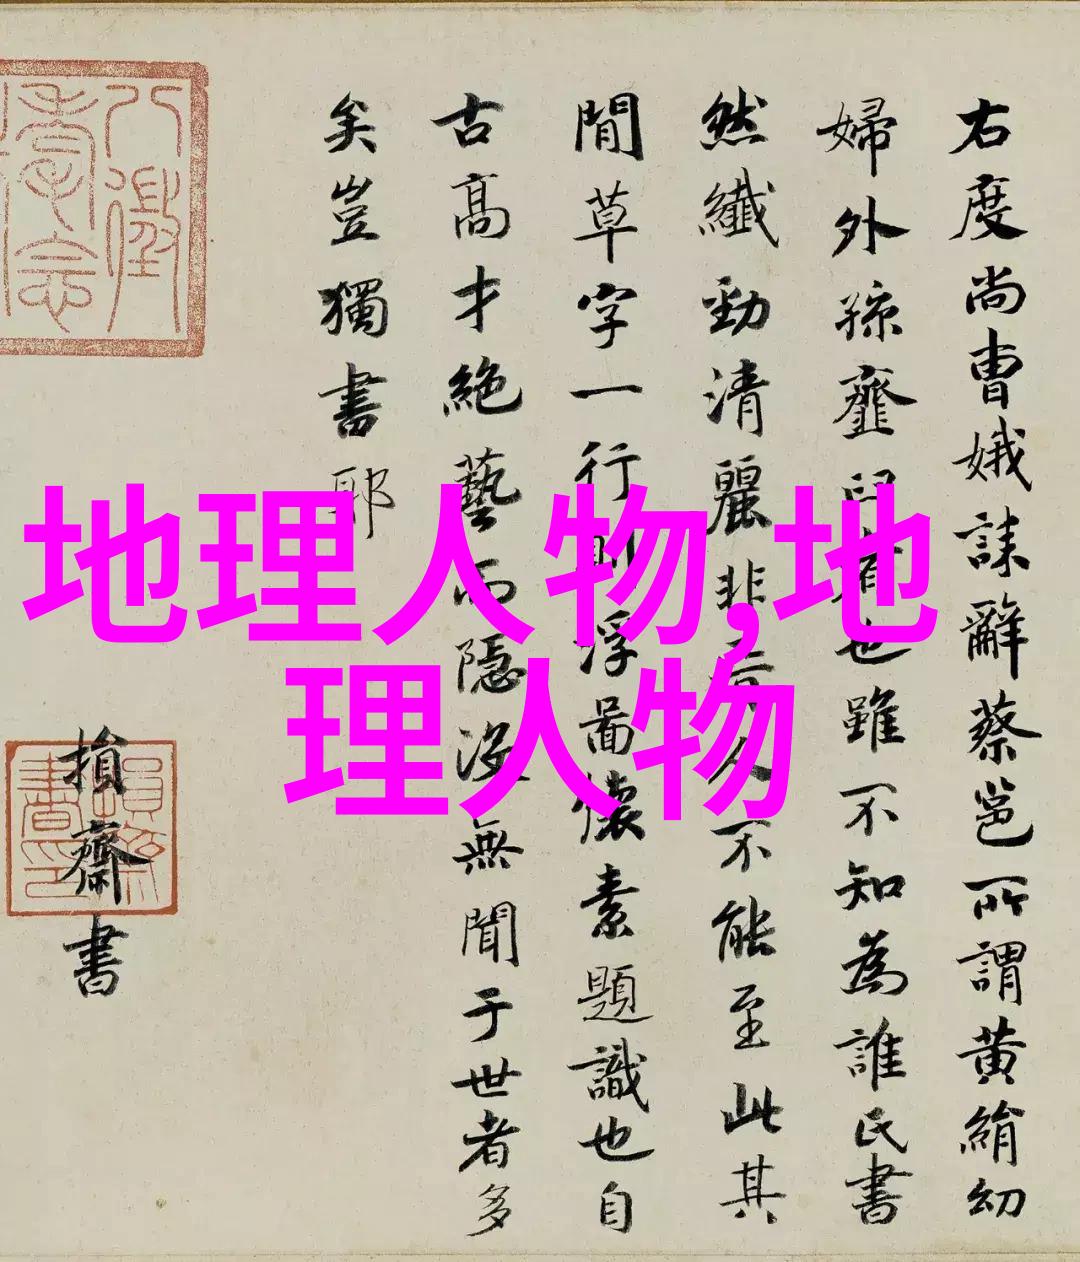 地理人物,地
理人物
右度尚曹娥誄辭蔡邕所謂黄絹幼
婦外孫虀臼者也雖不知為誰氏書
然纖勁清麗非晉人不能至此其
閒草字一行則浮啚懷素題識也自
古髙才絶藝而隱没無聞于世者多
矣豈獨書耶
損齋書
八徵
耄念
損齋
書印